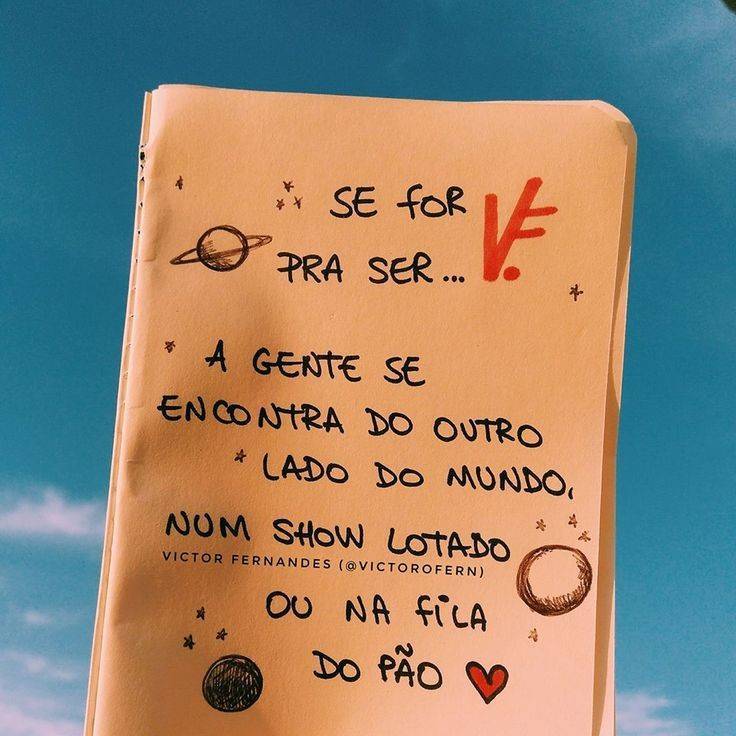 SE FOR VF.
PRA SER...
A GENTE SE
ENCONTRA DO OUTRO
LADO DO MUNDO,
NUM SHOW LOTADO
VICTOR FERNANDES (@VICTOROFERN)
OU NA FILA
DO PÃO